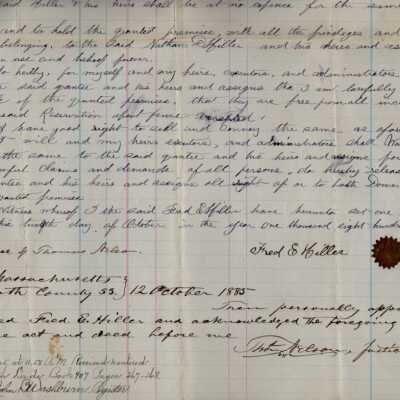 said Hiller & his heirs shall be at no expense for the same
and to hold the granted premises, with all the privileges and
belonging, to the said Nathan D Hiller and his heirs and assi
use and behoof forever.
do hereby, for myself and my heirs, executors, and administrators
said grantee and his heirs and assigns that I am lawfully
of the granted premises, that they are free from all incum
said Reservation, about fence excepted!
I have good right to sell and convey the same as afore
I will and my heirs executors, and administrators shall War
the same to the said grantee and his heirs and assigns for
lawful claims and demands of all persons do hereby release
grantee and his heirs and assigns all right of or to both Dower
granted premises
Witness whereof I the said Fred E Hiller have hereunto set our
this twelfth day of October in the year one thousand eight hundred
of Thomas Nelson. Fred E Hiller
Massachusetts
County SS. } 12 October 1885
Then personally appe
Fred E. Hiller and acknowledged the foregoing
act and deed before me
Thos Nelson, Justice
at 11.15 A.M. Received &
Book 907 Pages 267-268
John D. Washburn Register